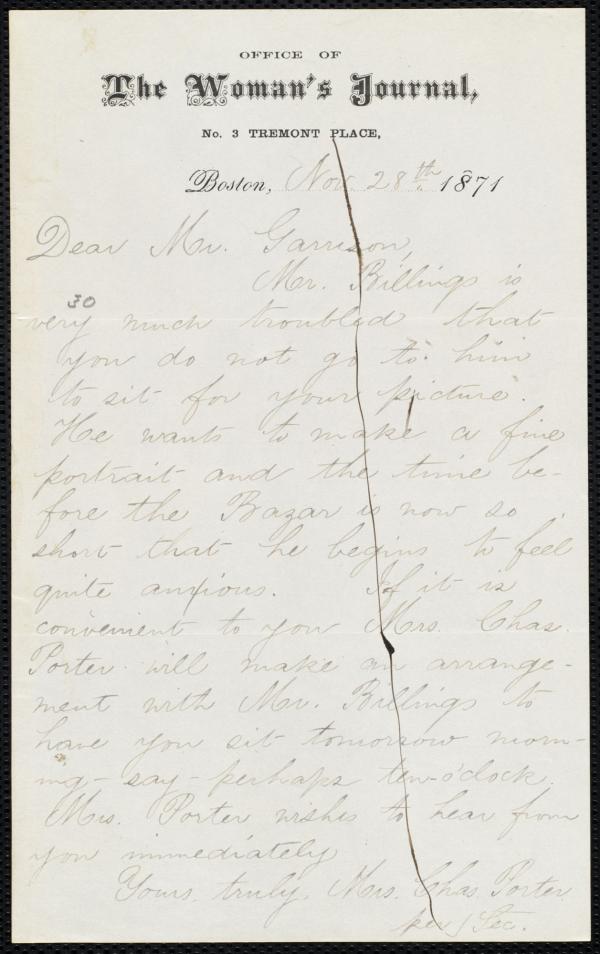 OFFICE OF
The Woman's Journal,
No. 3 TREMONT PLACE,
Boston, Nov. 28th 1871
Dear Mr. Garrison,
Mr. Billings is
30
very much troubled that
you do not go to him
to sit for your picture.
He wants to make a fine
portrait and the time be-
fore the Bazar is now so
short that he begins to feel
quite anxious. If it is
convenient to you Mrs. Chas.
Porter will make an arrange-
ment with Mr. Billings to
have you sit tomorrow morn-
ing - say - perhaps ten-o'clock.
Mrs. Porter wishes to hear from
you immediately
Yours truly Mrs. Chas. Porter
per Sec.